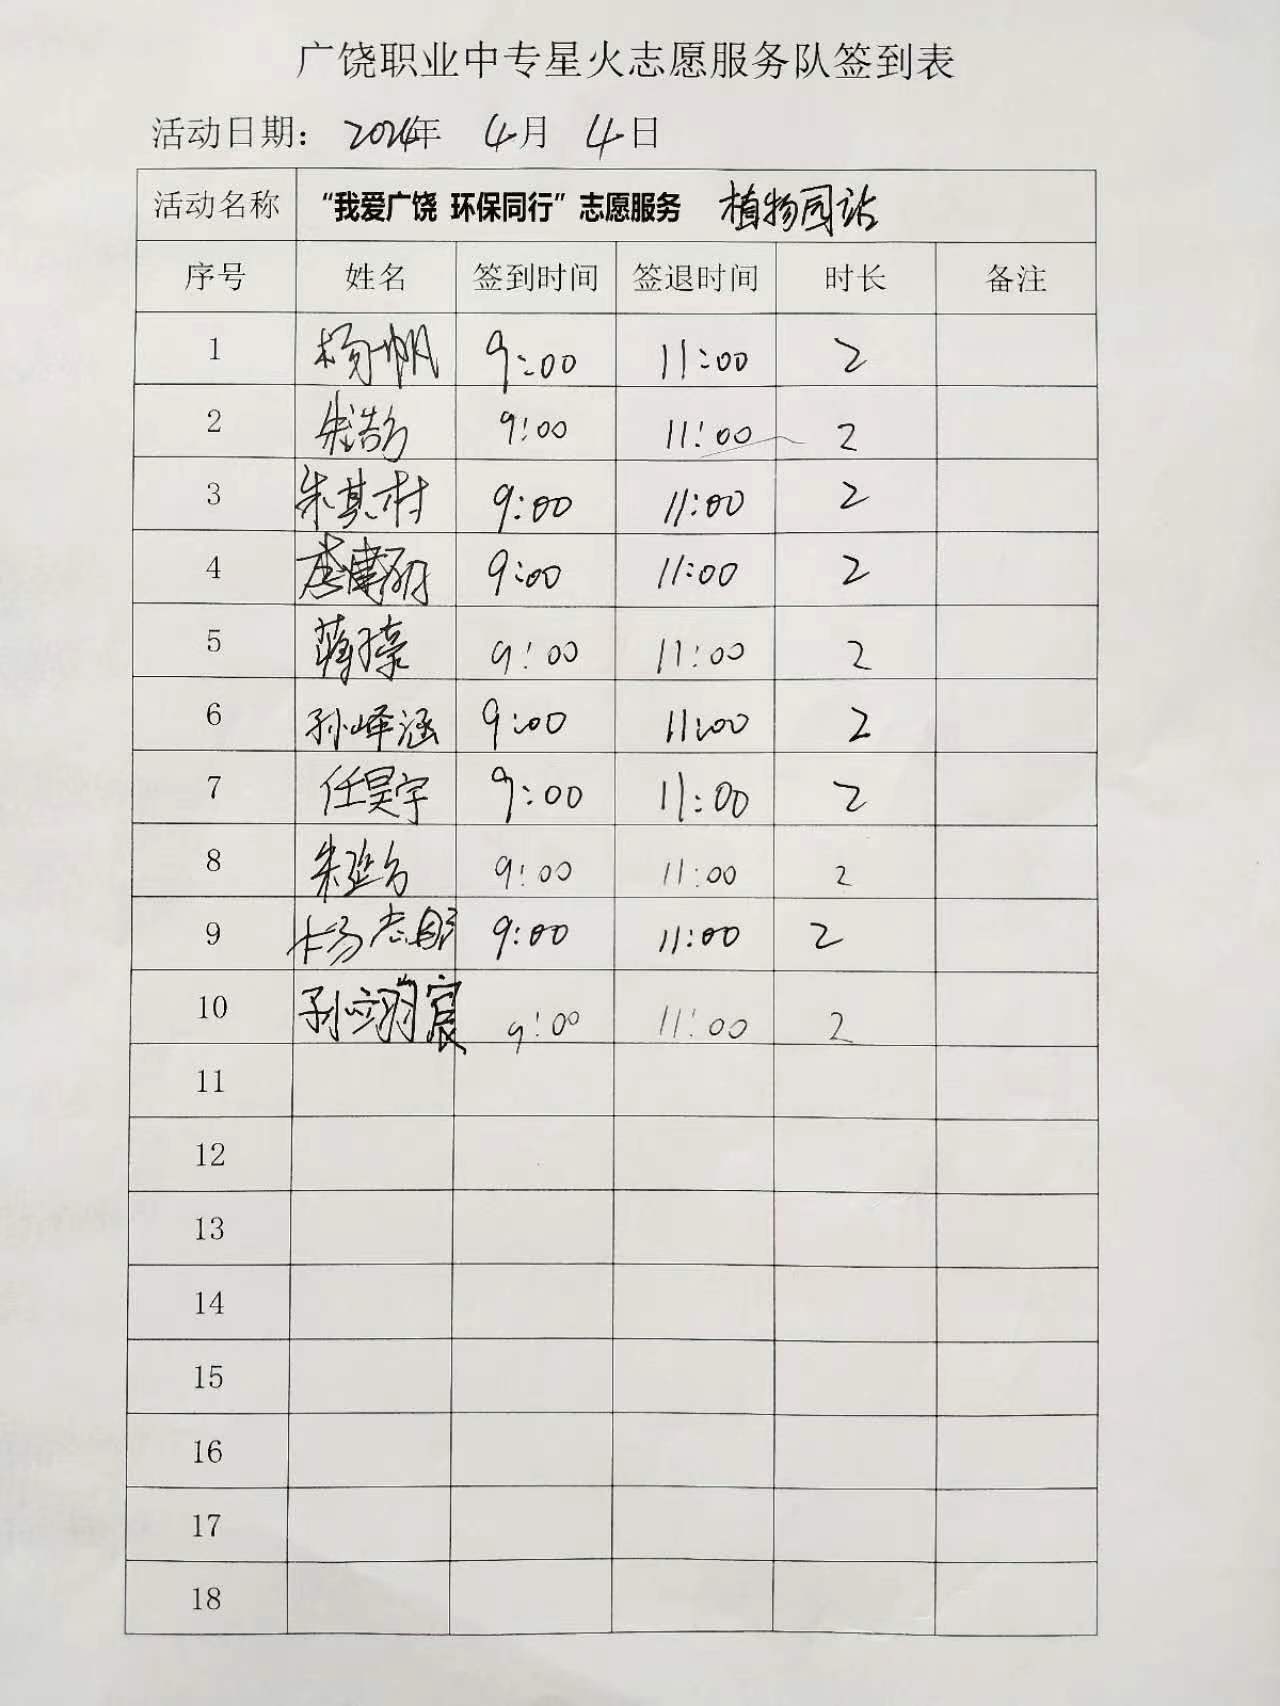 广饶职业中专星火志愿服务队签到表
活动日期： 2024年 4月 4日
活动名称 “我爱广饶 环保同行”志愿服务 植物园站
序号 姓名 签到时间 签退时间 时长 备注
1 杨帆 9:00 11:00 2
2 9:00 11:00 2
3 朱其村 9:00 11:00 2
4 9:00 11:00 2
5 9:00 11:00 2
6 孙峰涵 9:00 11:00 2
7 任昊宇 9:00 11:00 2
8 9:00 11:00 2
9 9:00 11:00 2
10 9:00 11:00 2
11
12
13
14
15
16
17
18